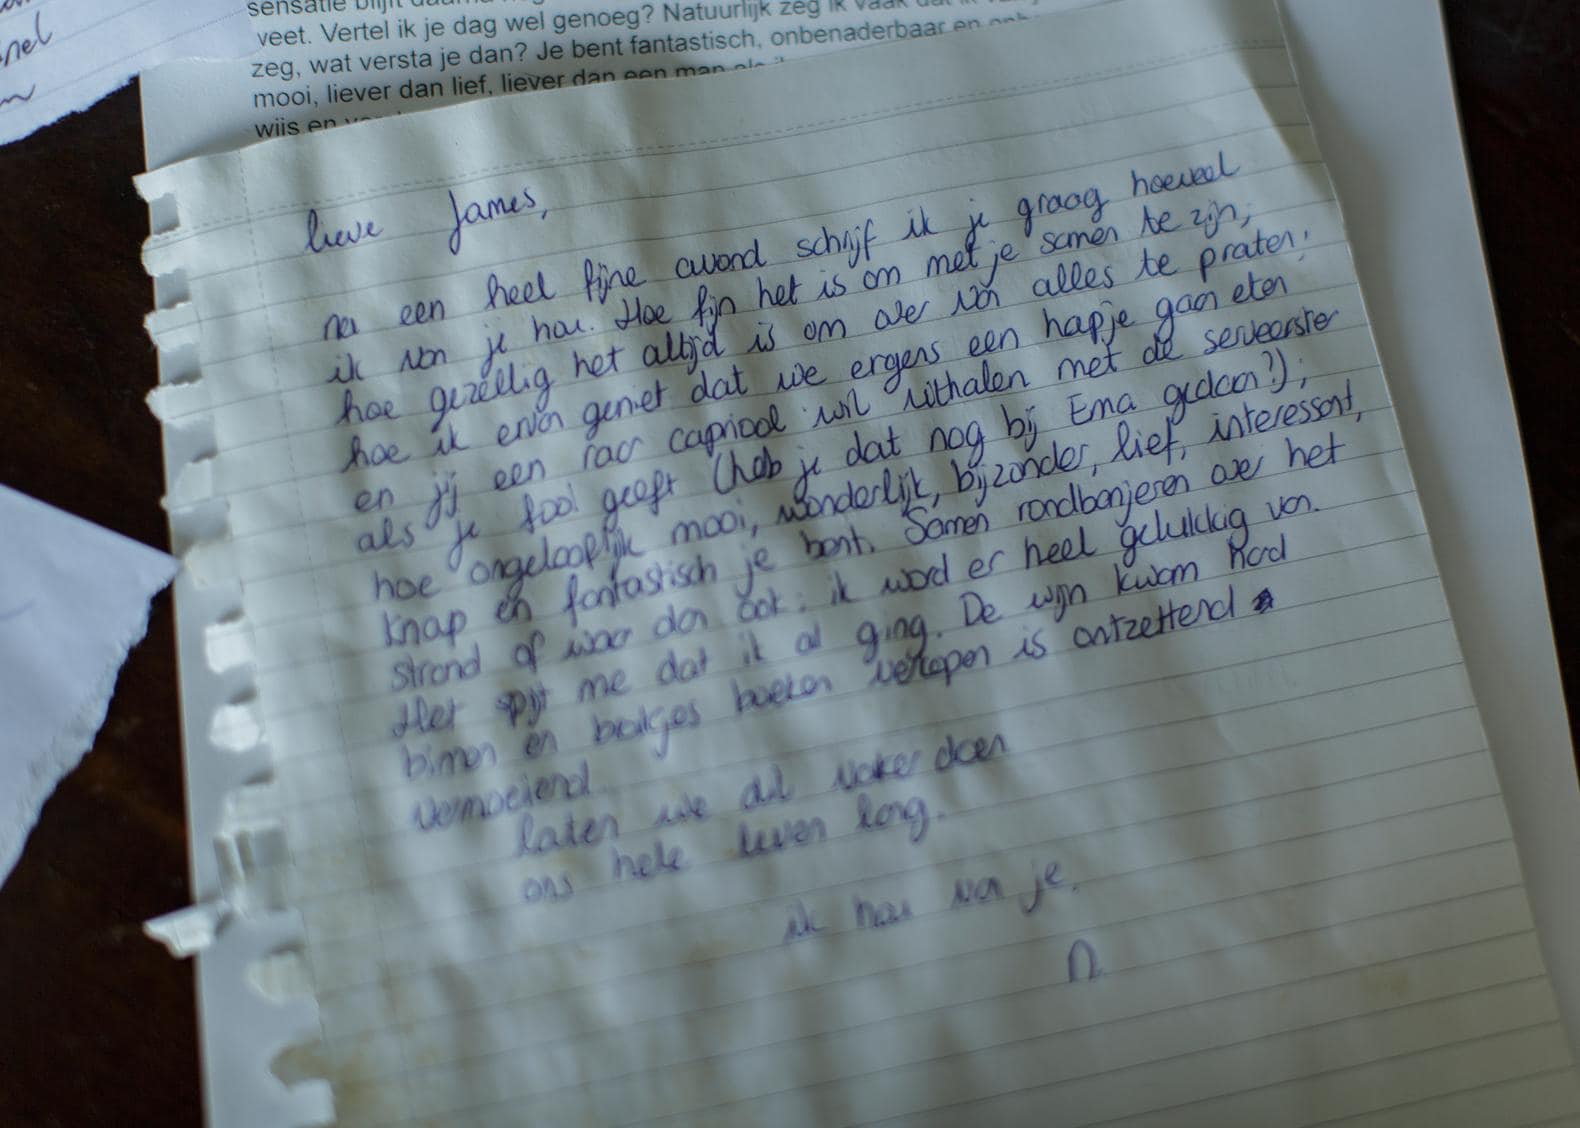 nel
veet. Vertel ik je dag wel genoeg? Natuurlijk zeg ik vaak
zeg, wat versta je dan? Je bent fantastisch, onbenaderbaar en
mooi, liever dan lief, liever dan een man
wijs en
lieve James,
na een heel fijne avond schrijf ik je graag hoeveel
ik van je hou. Hoe fijn het is om met je samen te zijn;
hoe gezellig het altijd is om over van alles te praten;
hoe ik ervan geniet dat we ergens een hapje gaan eten
en jij een raar capriool wil uithalen met de serveerster
als je fooi geeft (heb je dat nog bij Ema gedaan?);
hoe ongelooflijk mooi, wonderlijk, bijzonder, lief, interessant,
knap en fantastisch je bent. Samen rondbanjeren over het
strand of waar dan ook: ik word er heel gelukkig van.
Het spijt me dat ik al ging. De wijn kwam hard
binnen en boeken verkopen is ontzettend
vermoeiend.
laten we dit vaker doen
ons hele leven lang.
ik hou van je.
n